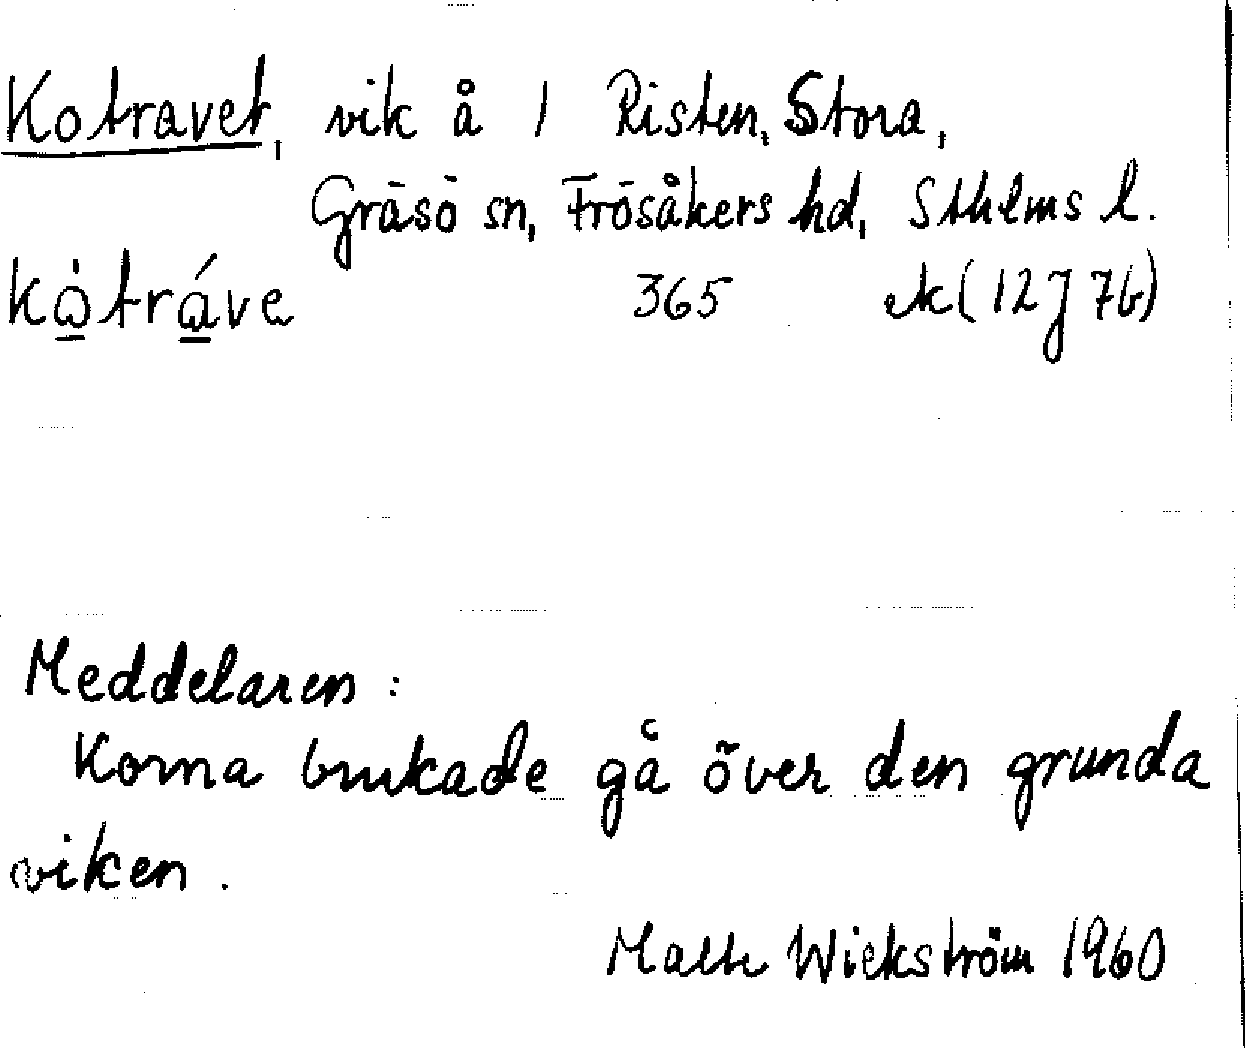 Kotravet, vik å 1 Risten, Stora,
Gräsö sn, Frösåkers hd, Sthlms l.
kὰ̲trá̲ve 365 ek (12J 7b)
Meddelaren:
Korna brukade gå över den grunda
viken.
Malte Wickström 1960